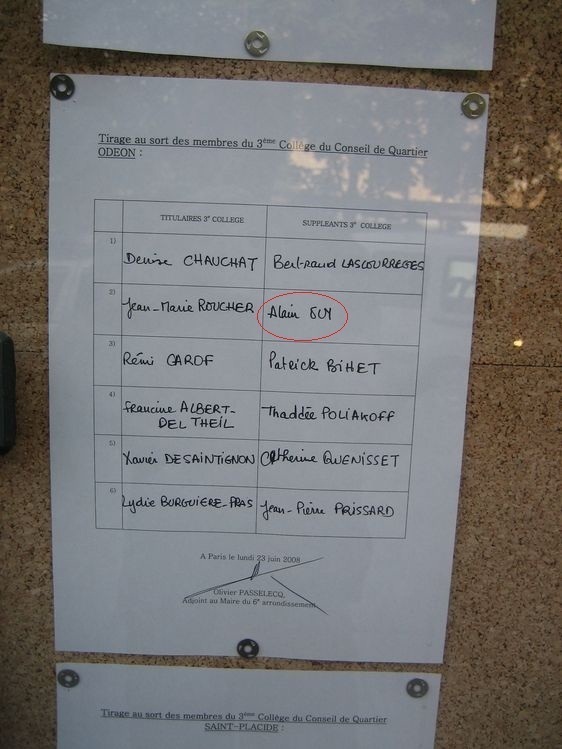 Tirage au sort des membres du 3ème Collège du Conseil de Quartier
ODEON :
TITULAIRES 3e COLLEGE SUPPLEANTS 3e COLLEGE
1) Denise CHAUCHAT Bertrand LASCOURREGES
2) Jean-Marie ROUCHER Alain GUY
3) Rémi CAROF Patrick BIHET
4) Francine ALBERT- Thaddée POLIAKOFF
DEL THEIL
5) Xavier DESAINTIGNON Catherine QUENISSET
6) Lydie BURGUIERE-PRAS Jean-Pierre PRISSARD
A Paris le lundi 23 juin 2008
Olivier PASSELECQ,
Adjoint au Maire du 6e arrondissement
Tirage au sort des membres du 3ème Collège du Conseil de Quartier
SAINT-PLACIDE :